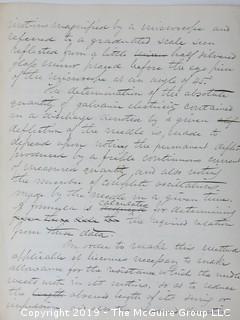 motions magnified by a microscope and
referred to a graduated scale seen
reflected from a little half silvered
glass mirror placed before the eye piece
of the microscope at an angle of 45°.
The determination of the absolute
quantity of galvanic electricity contained
in a discharge denoted by a given
deflection of the needle is made to
depend upon noting the permanent deflec
produced by a feeble continuous current
of measured quantity, and also noting
the number of complete oscillations
made by the needle in a given time.
A formula is calculated for determining
the required relation
from these data.
In order to make this method
applicable it becomes necessary to make
allowance for the resistance which the needle
meets with in its motions, so as to reduce
the observed length of its swing or
Copyright 2019 - The McGuire Group LLC